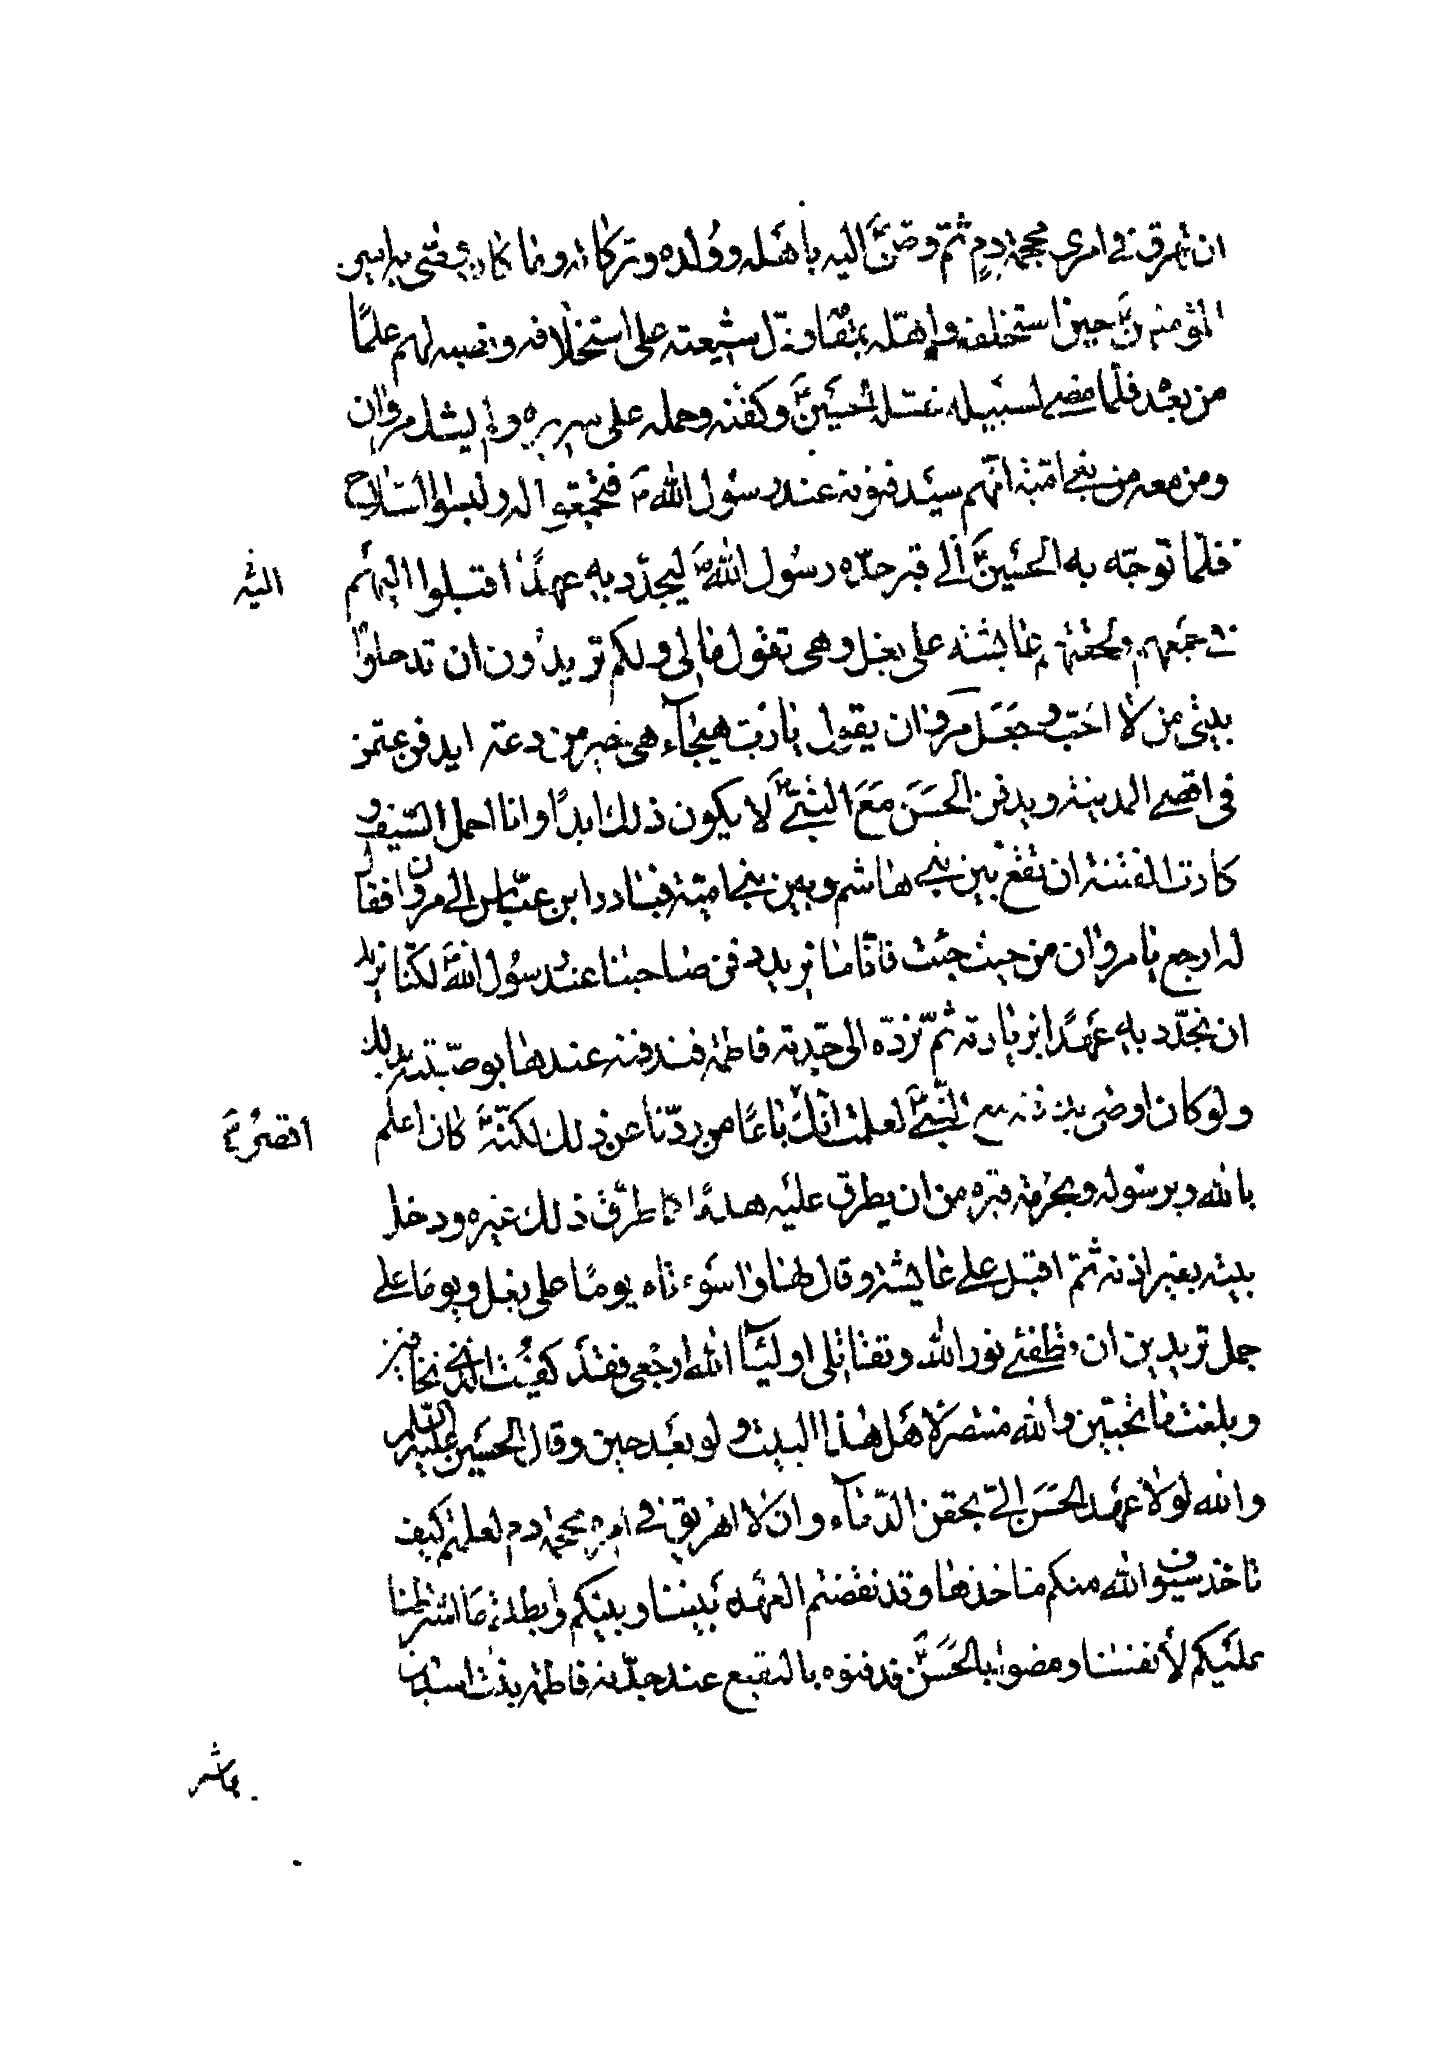 ان تهرق في امري محجمة دم ثم وصى اليه باهله وولده وتركاته وما كان وصى به امير
المؤمنين حين استخلفه واهله بمقامه ودل شيعته على استخلافه ونصبه لهم علما
من بعده فلما مضى لسبيله غسله الحسين وكفنه وحمله على سريره ولم يشك مروان
ومن معه من بني امية انهم سيدفنونه عند رسول الله فتجمعوا له ولبسوا السلاح
فلما توجه به الحسين الى قبر جده رسول الله ليجدد به عهدا اقبلوا اليهم
في جمعهم ولحقتهم عايشة على بغل وهي تقول مالي ولكم تريدون ان تدخلوا
بيتي من لا احب وجعل مروان يقول يا رب هيجاء هي خير من دعة ايدفن عثمن
في اقصى المدينة ويدفن الحسن مع النبي لا يكون ذلك ابدا وانا احمل السيف و
كادت الفتنة ان تقع بين بني هاشم وبين بني امية فبادر ابن عباس الى مروان فقال
له ارجع يا مروان من حيث جئت فانا ما نريد دفن صاحبنا عند رسول الله لكنا نريد
ان نجدد به عهدا بزيارته ثم نرده الى جدته فاطمة فندفنه عندها بوصيته بذلك
ولو كان اوصى بدفنه مع النبي لعلمت انك اقصر باعا من ردنا عن ذلك لكنه كان اعلم
بالله وبرسوله وبحرمة قبره من ان يطرق عليه هدما كما طرق ذلك غيره ودخل
بيته بغير اذنه ثم اقبل على عايشة وقال لها وا سوءتاه يوما على بغل ويوما على
جمل تريدين ان تطفئي نور الله وتقاتلي اولياء الله ارجعي فقد كفيت الذي تخافين
وبلغت ما تحبين والله منتصر لاهل هذا البيت ولو بعد حين وقال الحسين عليه السلم
والله لولا عهد الحسن الي بحقن الدماء وان لا اهريق في امره محجمة دم لعلمتم كيف
تاخذ سيوف الله منكم ماخذها وقد نقضتم العهد بيننا وبينكم وابطلتم ما اشترطنا
عليكم لأنفسنا ومضوا بالحسن فدفنوه بالبقيع عند جدته فاطمة بنت اسد بن
هاشم